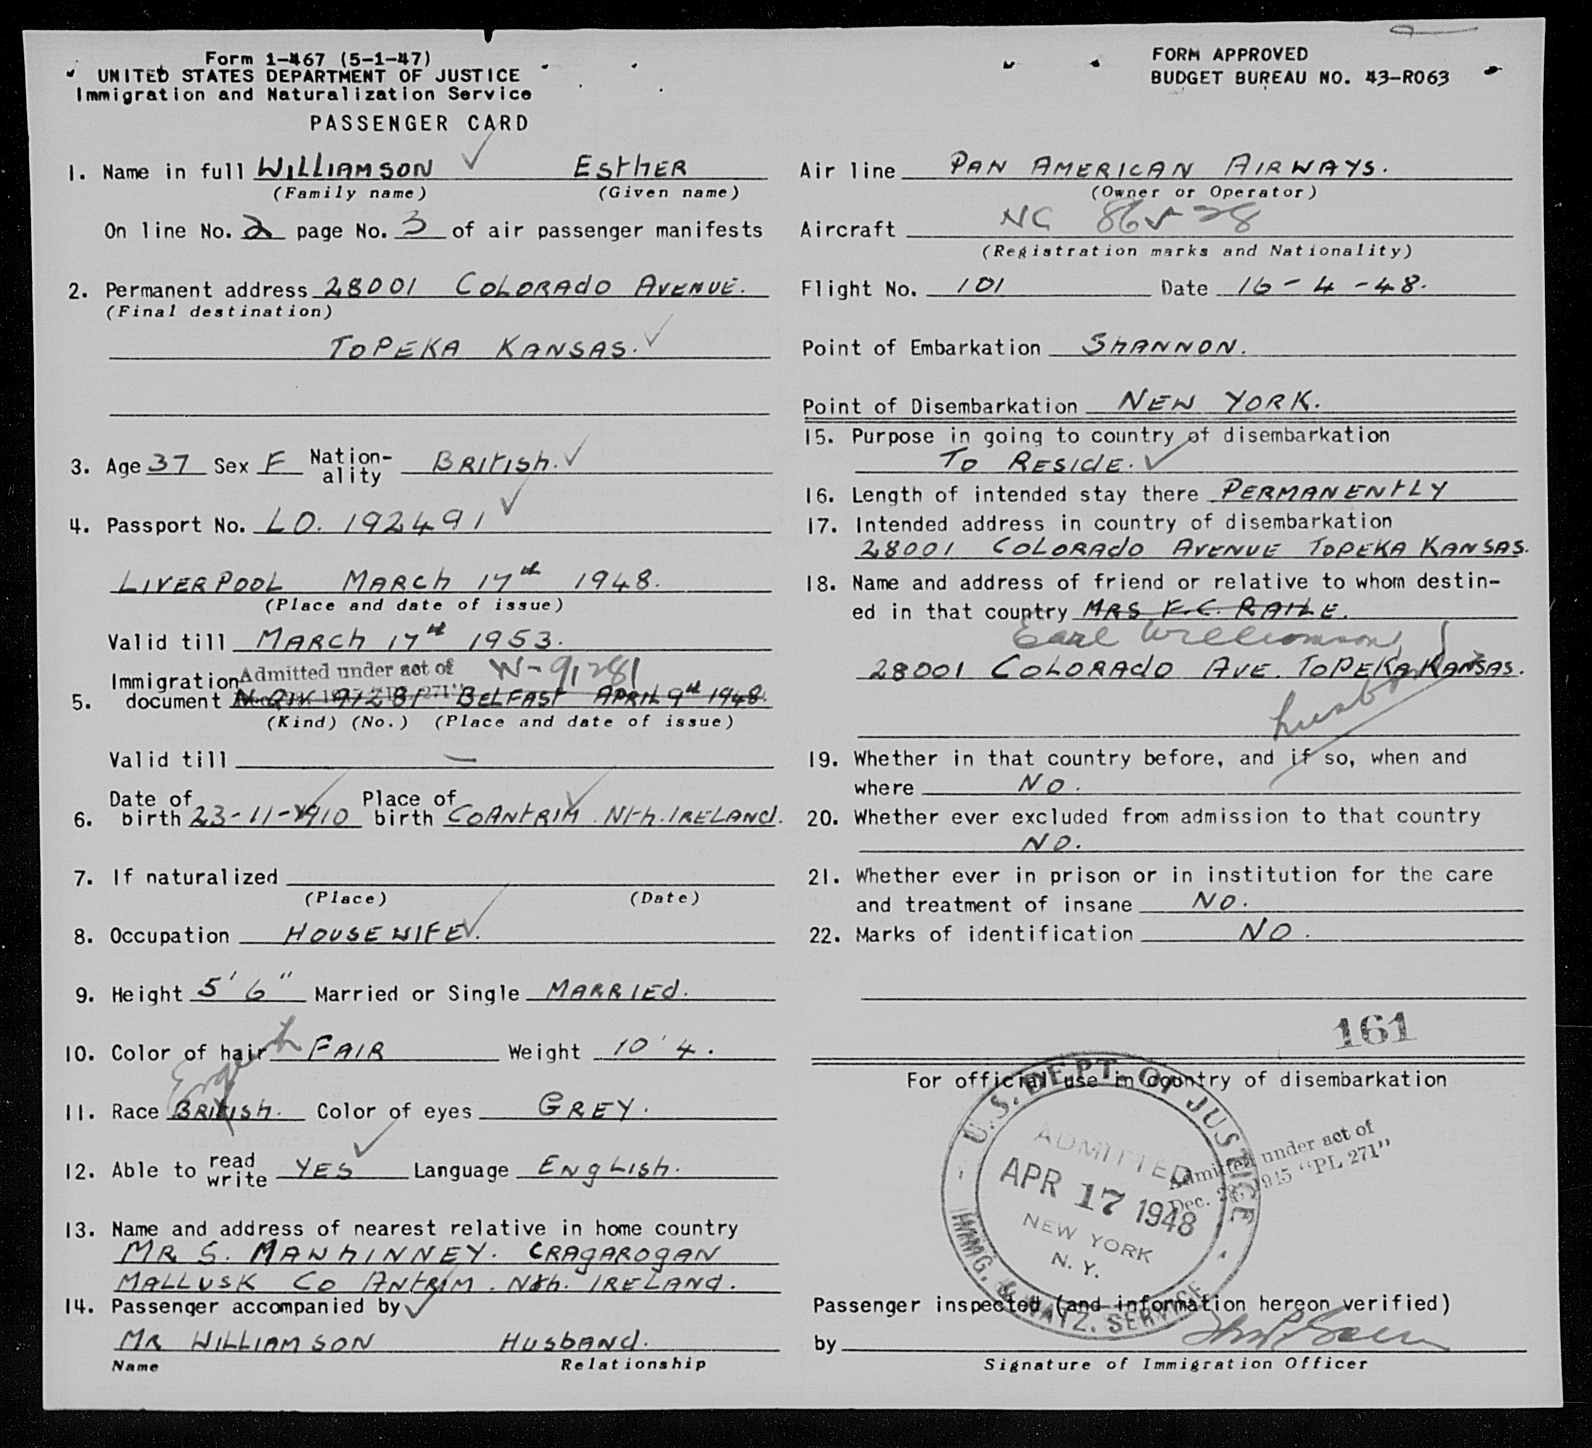 Form 1-467 (5-1-47)
UNITED STATES DEPARTMENT OF JUSTICE
Immigration and Naturalization Service
PASSENGER CARD
FORM APPROVED
BUDGET BUREAU NO. 43-R063
1. Name in full WILLIAMSON ESTHER
(Family name) (Given name)
On line No. 2 page No. 3 of air passenger manifests
2. Permanent address 28001 COLORADO AVENUE.
(Final destination)
TOPEKA KANSAS.
3. Age 37 Sex F Nation-ality BRITISH.
4. Passport No. LO. 192491
LIVERPOOL MARCH 17th 1948.
(Place and date of issue)
Valid till MARCH 17th 1953.
Admitted under act of W-91281
5. Immigration document BELFAST APRIL 9th 1948.
(Kind) (No.) (Place and date of issue)
Valid till —
6. Date of birth 23-11-1910 Place of birth CO ANTRIM. Nth. IRELAND.
7. If naturalized
(Place) (Date)
8. Occupation HOUSEWIFE.
9. Height 5' 6" Married or Single MARRIED.
10. Color of hair FAIR Weight 10' 4.
English
11. Race BRITISH. Color of eyes GREY.
12. Able to read write YES Language ENGLISH.
13. Name and address of nearest relative in home country
MR S. MAWHINNEY. CRAGAROGAN
MALLUSK CO ANTRIM. Nth. IRELAND.
14. Passenger accompanied by
MR WILLIAMSON HUSBAND.
Name Relationship
Air line PAN AMERICAN AIRWAYS.
(Owner or Operator)
Aircraft NC 86528
(Registration marks and Nationality)
Flight No. 101 Date 16-4-48.
Point of Embarkation SHANNON.
Point of Disembarkation NEW YORK.
15. Purpose in going to country of disembarkation
TO RESIDE.
16. Length of intended stay there PERMANENTLY
17. Intended address in country of disembarkation
28001 COLORADO AVENUE TOPEKA KANSAS.
18. Name and address of friend or relative to whom destin-
ed in that country MRS F.C. RAILE.
Earl Williamson
28001 COLORADO AVE. TOPEKA KANSAS.
husband
19. Whether in that country before, and if so, when and
where NO.
20. Whether ever excluded from admission to that country
NO.
21. Whether ever in prison or in institution for the care
and treatment of insane NO.
22. Marks of identification NO.
161
For official use in country of disembarkation
U.S. DEPT. OF JUSTICE
ADMITTED
APR 17 1948
NEW YORK
N. Y.
IMMG. & NATZ. SERVICE
Admitted under act of
Dec. 28, 1945 "PL 271"
Passenger inspected (and information hereon verified)
by
Signature of Immigration Officer